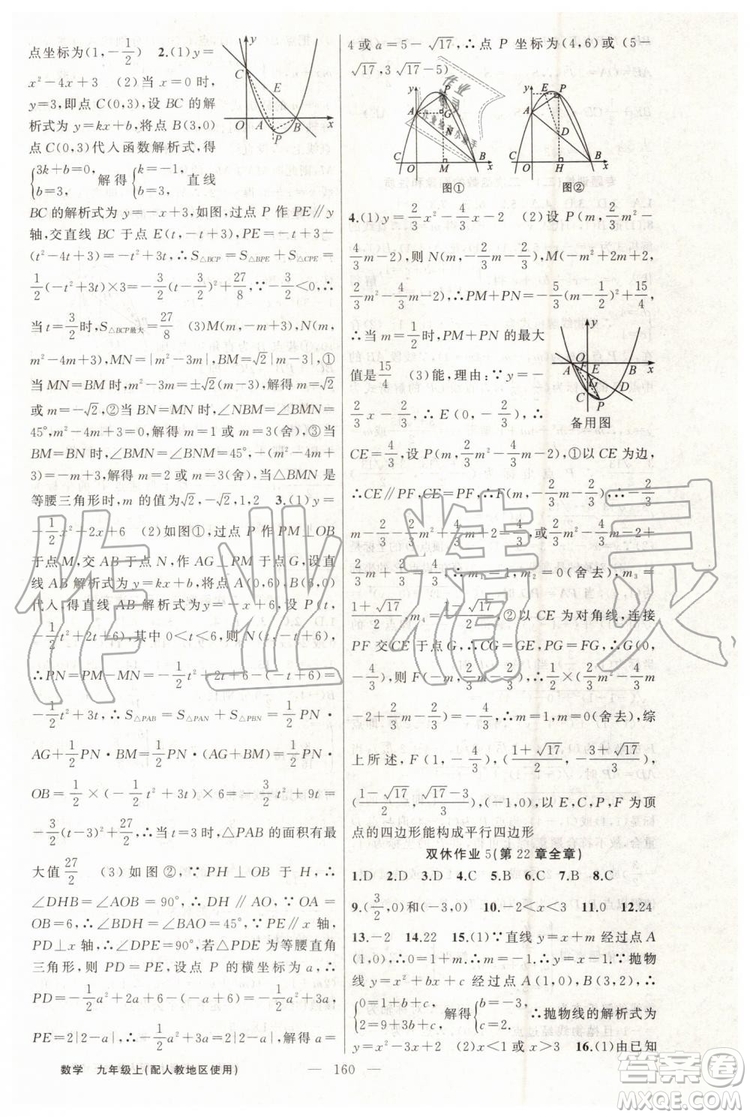 点坐标为(1,-1/2) 2.(1)y=
x²-4x+3 (2)当 x=0 时,
y=3,即点 C(0,3),设 BC 的解
析式为 y=kx+b,将点 B(3,0)
点 C(0,3)代入函数解析式,得
{3k+b=0, b=3, 解得{k=-1, b=3, 直线
BC 的解析式为 y=-x+3,如图,过点 P 作 PE∥y
轴,交直线 BC 于点 E(t,-t+3),PE=-t+3-
(t²-4t+3)=-t²+3t,∴S△BCP=S△BPE+S△CPE=
1/2(-t²+3t)×3=-3/2(t-3/2)²+27/8,∵-3/2<0,∴
当 t=3/2时,S△BCP最大=27/8 (3)M(m,-m+3),N(m,
m²-4m+3),MN=|m²-3m|,BM=√2|m-3|,①
当 MN=BM 时,m²-3m=±√2(m-3),解得 m=
√2或 m=-√2,②当 BN=MN 时,∠NBM=∠BMN=
45°,m²-4m+3=0,解得 m=1 或 m=3(舍),③当
BM=BN 时,∠BMN=∠BNM=45°,-(m²-4m+
3)=-m+3,解得 m=2 或 m=3(舍),当△BMN 是
等腰三角形时,m 的值为√2,-√2,1,2 3.(1)y=
-1/2x²-2x+6 (2)如图①,过点 P 作 PM⊥OB
于点 M,交 AB 于点 N,作 AG⊥PM 于点 G,设直
线 AB 解析式为 y=kx+b,将点 A(0,6),B(6,0)
代入,得直线 AB 解析式为 y=-x+6,设 P(t,-1/2t²
+2t+6),其中 0<t<6,则 N(t,-t+6),
∴PN=PM-MN=-1/2t²+2t+6-(-t+6)=
-1/2t²+3t,∴S△PAB=S△PAN+S△PBN=1/2PN·
AG+1/2PN·BM=1/2PN(AG+BM)=1/2PN·
OB=1/2×(-1/2t²+3t)×6=-3/2t²+9t=
-3/2(t-3)²+27/2,∴当 t=3 时,△PAB 的面积有最
大值27/2 (3)如图②,∵PH⊥OB 于 H,∴
∠DHB=∠AOB=90°,∴DH∥AO,∵OA=
OB=6,∴∠BDH=∠BAO=45°,∵PE∥x
轴、PD⊥x 轴,∴∠DPE=90°,若△PDE 为等腰直角三角形,
则 PD=PE,设点 P 的横坐标为 a,
∴PD=-1/2a²+2a+6-(-a+6)=-1/2a²+3a,
PE=2|2-a|,∴-1/2a²+3a=2|2-a|,解得 a=
4 或 a=5-√17,∴点 P 坐标为(4,6)或(5-
√17,3√17-5)
图① 图②
4.(1)y=2/3x²-4/3x-2 (2)设 P(m,2/3m²-
4/3m-2),则 N(m,-2/3m-2/3),∴PM=-2/3m²+
4/3m+2,∴PM+PN=-2/3(m-1/2)²+15/4,
∴当 m=1/2时,PM+PN 的最大
值是15/4 (3)能,理由:∵y=-
2/3x-2/3,∴E(0,-2/3),∴
备用图
CE=4/3,设 P(m,2/3m²-4/3m-2),①以 CE 为边,
∴CE∥PF,CE=PF,∴F(m,-2/3m-2/3),∴-2/3
m-2/3-2/3m²+4/3m+2=4/3或2/3m²-4/3m-2+
2/3m+2/3=4/3,∴m₁=1,m₂=0(舍去),m₃=
(1+√17)/2,m₄=(1-√17)/2,②以 CE 为对角线,连接
PF 交 CE 于点 G,∴CG=GE,PG=FG,∴G(0,
-4/3),∴F(-m,2/3m-2/3),∴1/2×(2/3m²-4/3m
-2+2/3m-2/3)=-4/3,∴m=1,m=0(舍去),综
上所述,F(1,-4/3),((1+√17)/2,-(3+√17)/3),
((1-√17)/2,(-3+√17)/3),(-1,0),以 E,C,P,F 为顶
点的四边形能构成平行四边形
双休作业 5(第 22 章全章)
1.D 2.D 3.D 4.C 5.B 6.C 7.B 8.C
9.(3/2,0)和(-3,0) 10.-2<x<3 11.0 12.24
13.-2 14.22 15.(1)∵直线 y=x+m 经过点 A
(1,0),∴0=1+m,∴m=-1,∵抛物
线 y=x²+bx+c 经过点 A(1,0),B(3,2),∴
{0=1+b+c, 2=9+3b+c, 解得{b=-3, c=2, ∴抛物线的解析式为
y=x²-3x+2 (2)x<1 或 x>3 16.(1)由已知
数学 九年级上(配人教地区使用) — 160 —